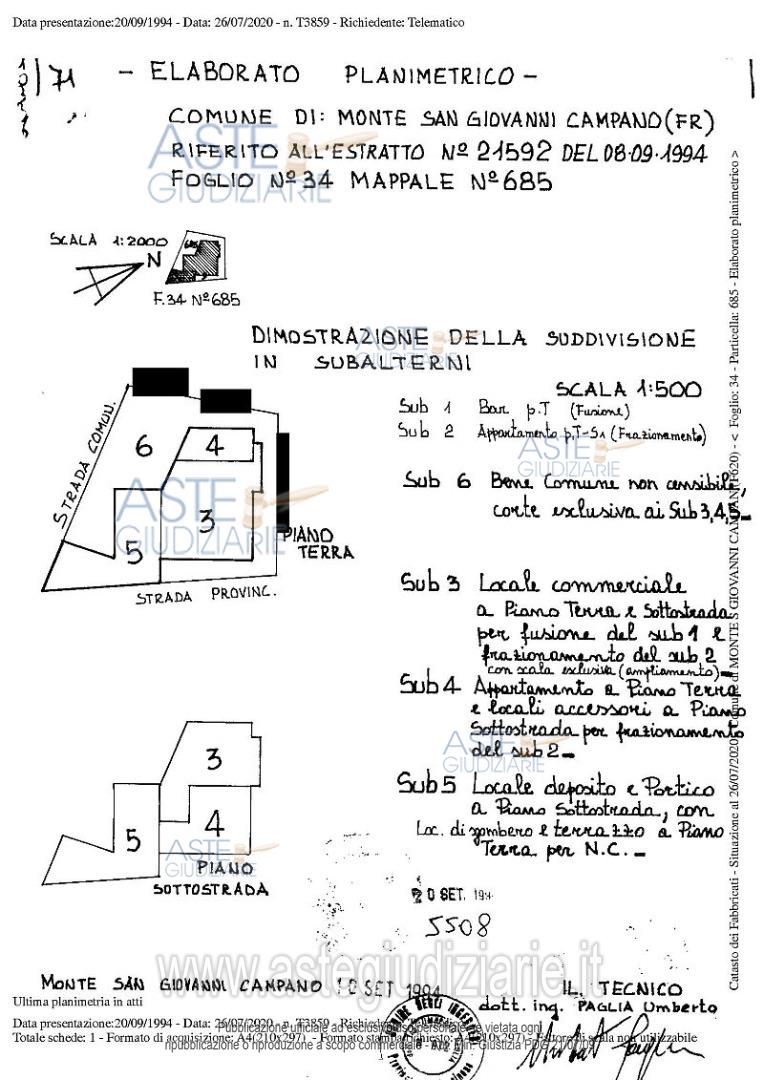 Data presentazione:20/09/1994 - Data: 26/07/2020 - n. T3859 - Richiedente: Telematico
71
- ELABORATO PLANIMETRICO -
COMUNE DI: MONTE SAN GIOVANNI CAMPANO (FR)
RIFERITO ALL'ESTRATTO Nº 21592 DEL 08.09.1994
FOGLIO Nº 34 MAPPALE Nº 685
ASTE
GIUDIZIARIE
SCALA 1:2000
N
685
F.34 Nº 685
DIMOSTRAZIONE DELLA SUDDIVISIONE
IN SUBALTERNI
ASTE
GIUDIZIARIE
SCALA 1:500
Sub 1 Bar p.T (Fusione)
Sub 2 Appartamento p.T-S1 (Frazionamento)
ASTE
GIUDIZIARIE
Sub 6 Bene Comune non censibile,
corte esclusiva ai Sub 3,4,5_
STRADA COMUN.
6
4
3
5
ASTE
GIUDIZIARIE
PIANO
TERRA
STRADA PROVINC.
Sub 3 Locale commerciale
a Piano Terra e Sottostrada
per fusione del sub 1 e
frazionamento del sub 2
con scala esclusiva (ampliamento)_
Sub 4 Appartamento a Piano Terra
e locali accessori a Piano
Sottostrada per frazionamento
del sub 2_
ASTE
GIUDIZIARIE
Sub 5 Locale deposito e Portico
a Piano Sottostrada, con
Loc. di sgombero e terrazzo a Piano
Terra per N.C._
3
4
5
ASTE
GIUDIZIARIE
PIANO
SOTTOSTRADA
20 SET. 199
5508
www.astegiudiziarie.it
MONTE SAN GIOVANNI CAMPANO 10 SET 1994
IL TECNICO
dott. ing. PAGLIA Umberto
Ultima planimetria in atti
Data presentazione:20/09/1994 - Data: 26/07/2020 - n. T3859 - Richiedente: Telematico
Totale schede: 1 - Formato di acquisizione: A4(210x297) - Formato stampa richiesto: A4(210x297) - Fattore di scala non utilizzabile
Pubblicazione ufficiale ad esclusivo uso personale - è vietata ogni
ripubblicazione o riproduzione a scopo commerciale - Aut. Min. Giustizia PDG 21/07/09
Catasto dei Fabbricati - Situazione al 26/07/2020 - Comune di MONTE S GIOVANNI CAMPANO (F620) - < Foglio: 34 - Particella: 685 - Elaborato planimetrico >